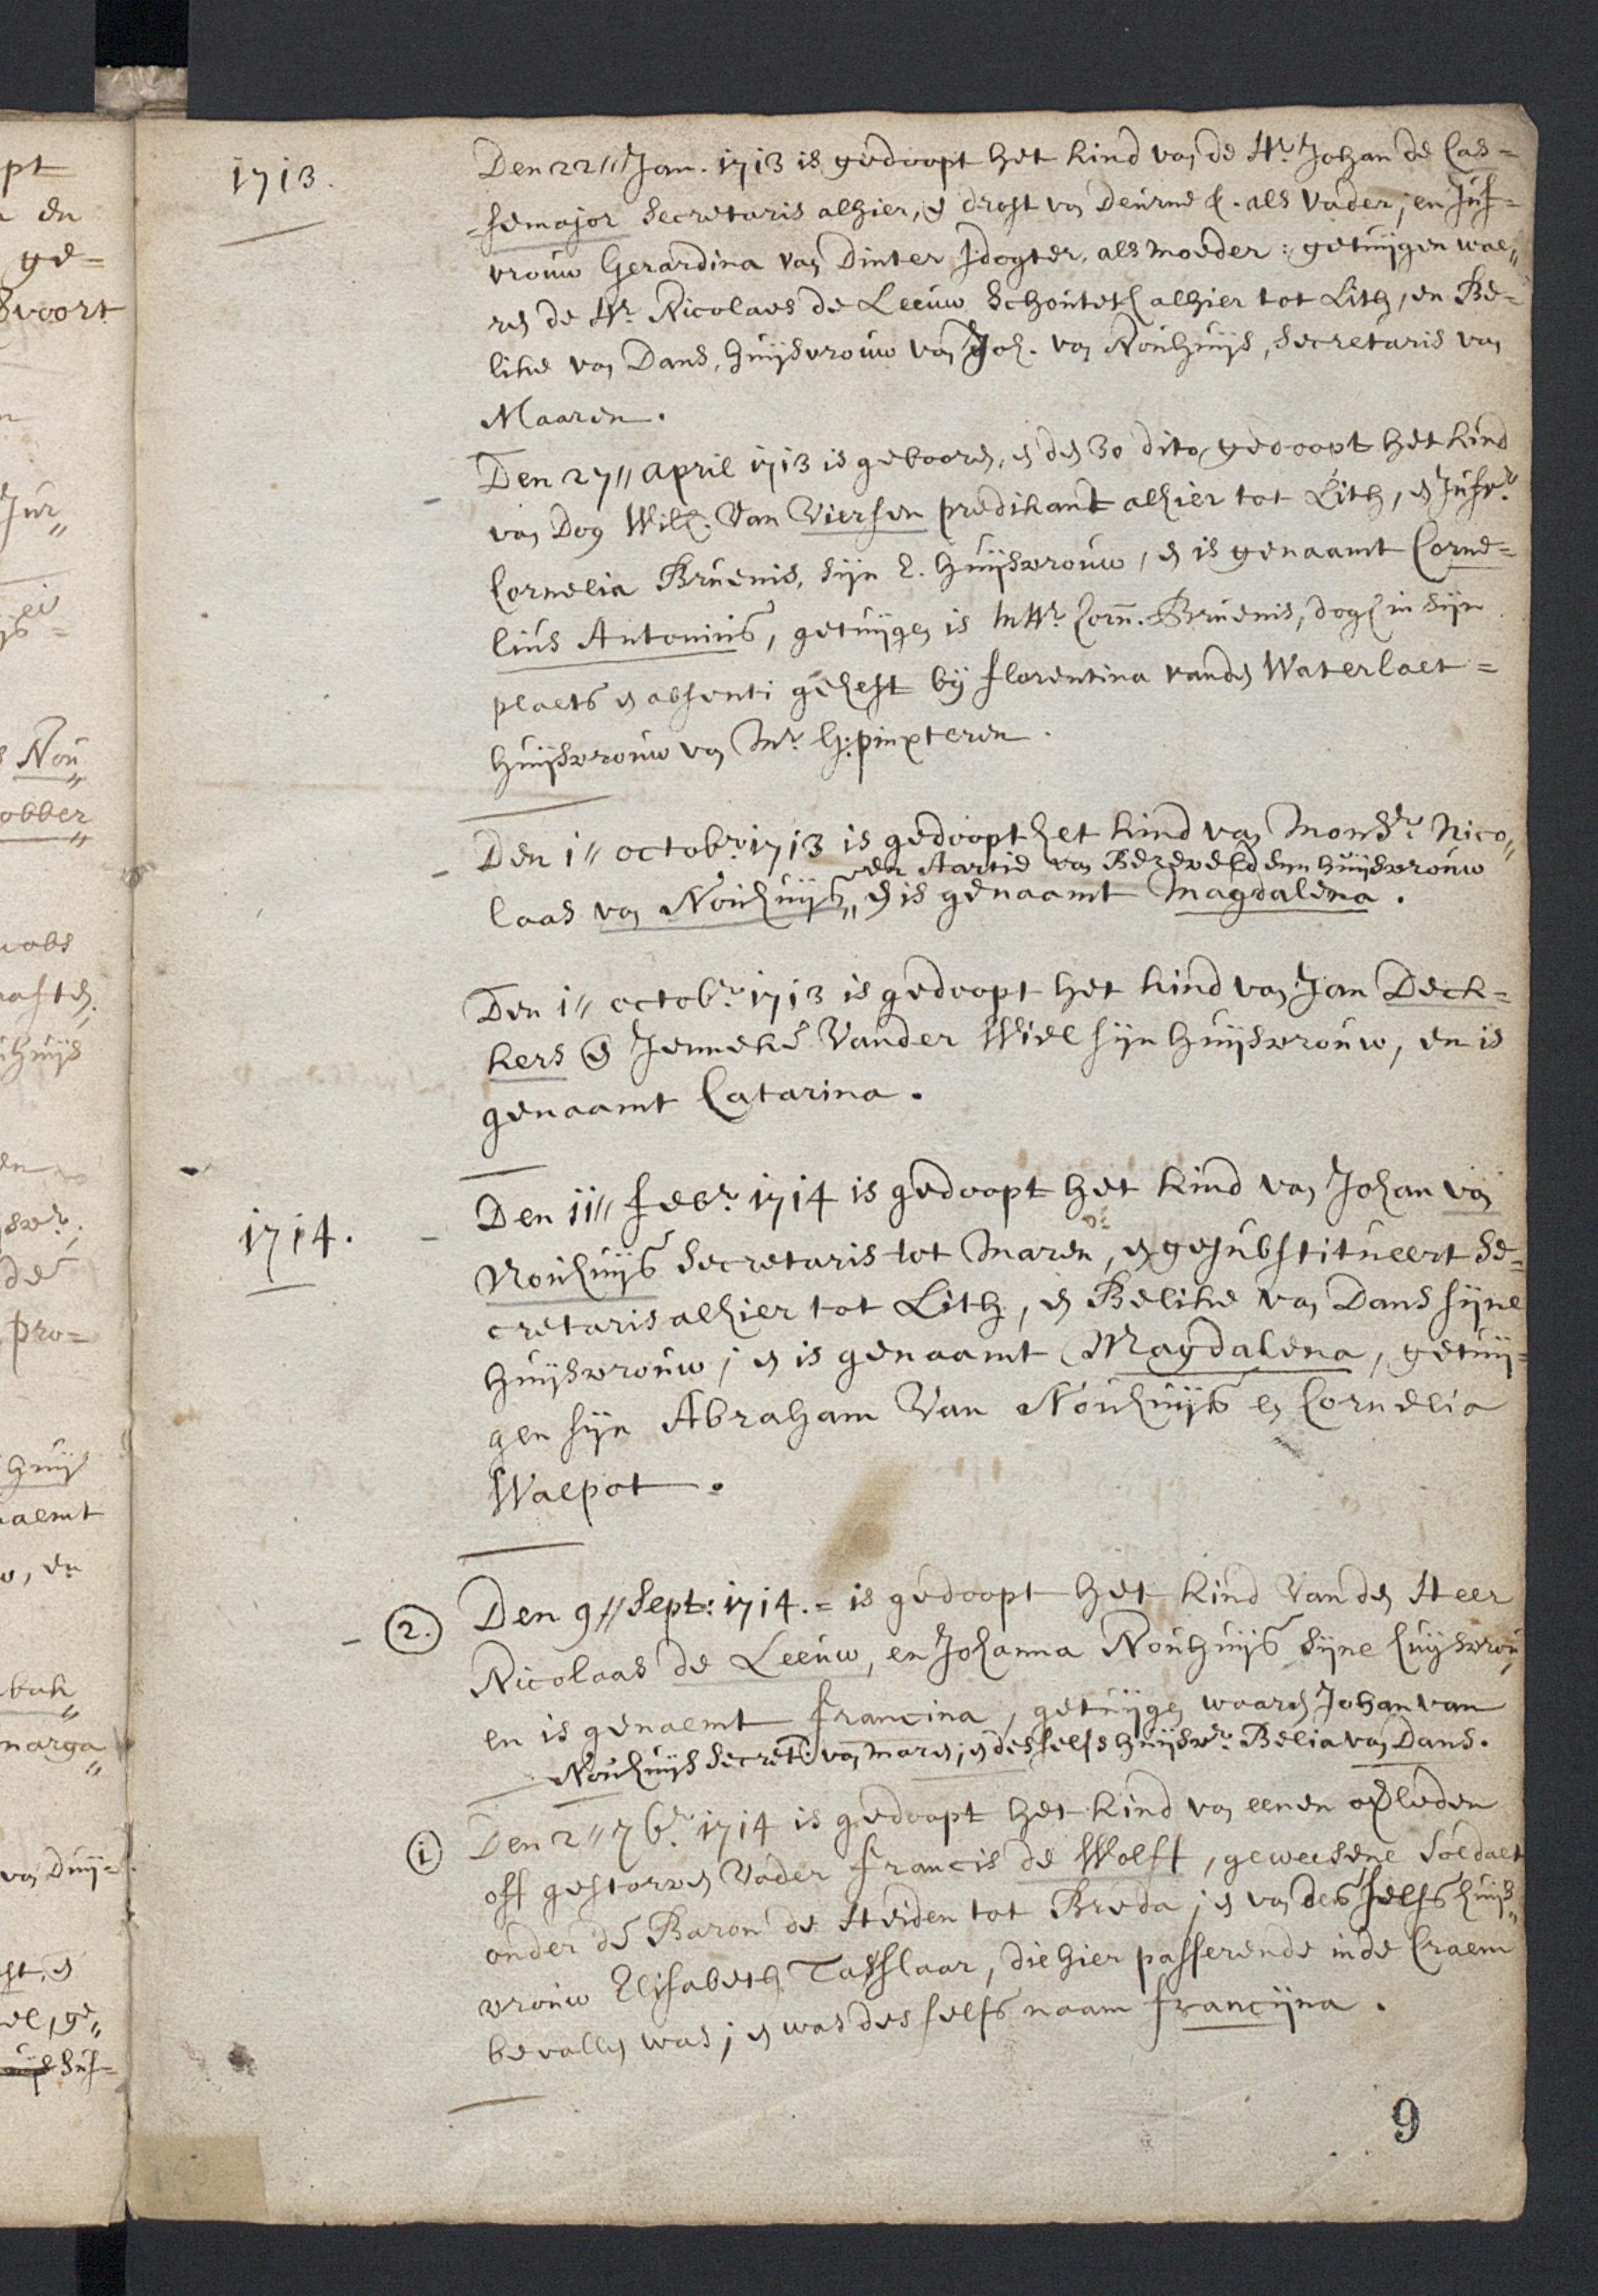 1713.
Den 22 // Jan. 1713 is gedoopt het kind van de Hr. Johan de Cas=
=semajor Secretaris alhier, en drost van Deúrne &. als Vader, en Júf=
vroúw Gerardina van Dinter dogter. als moeder: getúijgen wae„
ren de Hr. Nicolaes de Leeúw Schoúteth alhier tot Lith, en Be=
like van Dans, húijsvroúw van Joh. van Noúhúijs, Secretaris van
Maaren.
Den 27 // April 1713 is gebooren, en den 30 dito gedoopt het kind
van Dog Wilh. Van Viersen predikant alhier tot Lith, en Júfvr.
Cornelia Brúenis, sijn E. húijsvroúw, en is genaamt Corne=
liús Antoniús, getúijgen is mHr. Corn. Brúenis, dogh in sijn
plaets en absenti geheft bij Florentina vanden Waterlaet=
húijsvroúw van Mr. G: pinxteren.
Den 1 // octobr. 1713 is gedoopt het kind van Monsr. Nico„
en Aartie van Berevelt dem húijsvroúw
laas van Noúhúijs„ en is genaamt Magdalena.
Den 1 // octobr. 1713 is gedoopt het kind van Jan Deck=
kers en Jenneke Vander Wiel sijn húijsvroúw, en is
genaamt Catarina.
1714.
Den 11 // Febr. 1714 is gedoopt het kind van Johan van
Noúhúijs Secretaris tot Maren, en gesúbstitúeert Se=
cretaris alhier tot Lith, en Belike van Dans sijne
húijsvroúw; en is genaamt Magdalena, getúij=
gen sijn Abraham Van Noúhúijs en Cornelia
Walpot.
2.
Den 9 // Sept: 1714. = is gedoopt het kind vanden Heer
Nicolaas de Leeúw, en Johanna Noúhúijs sijne húijsvroú„
en is genaemt Francina, getúijgen waaren Johan van
Noúhúijs Secret: van Maren; en desselfs húijsvr. Belia van Dans.
1
Den 2 // 7br. 1714 is gedoopt het kind van eenen opleden
off gestorven Vader Francis de Wolff, geweesene Soldaet
onder de Baron de Heiden tot Breda; en van desselfs húijs„
vroúw Elisabeth Tasslaar, die hier passerende inde Craem
bevallen was; en was desselfs naam Francijna.
9